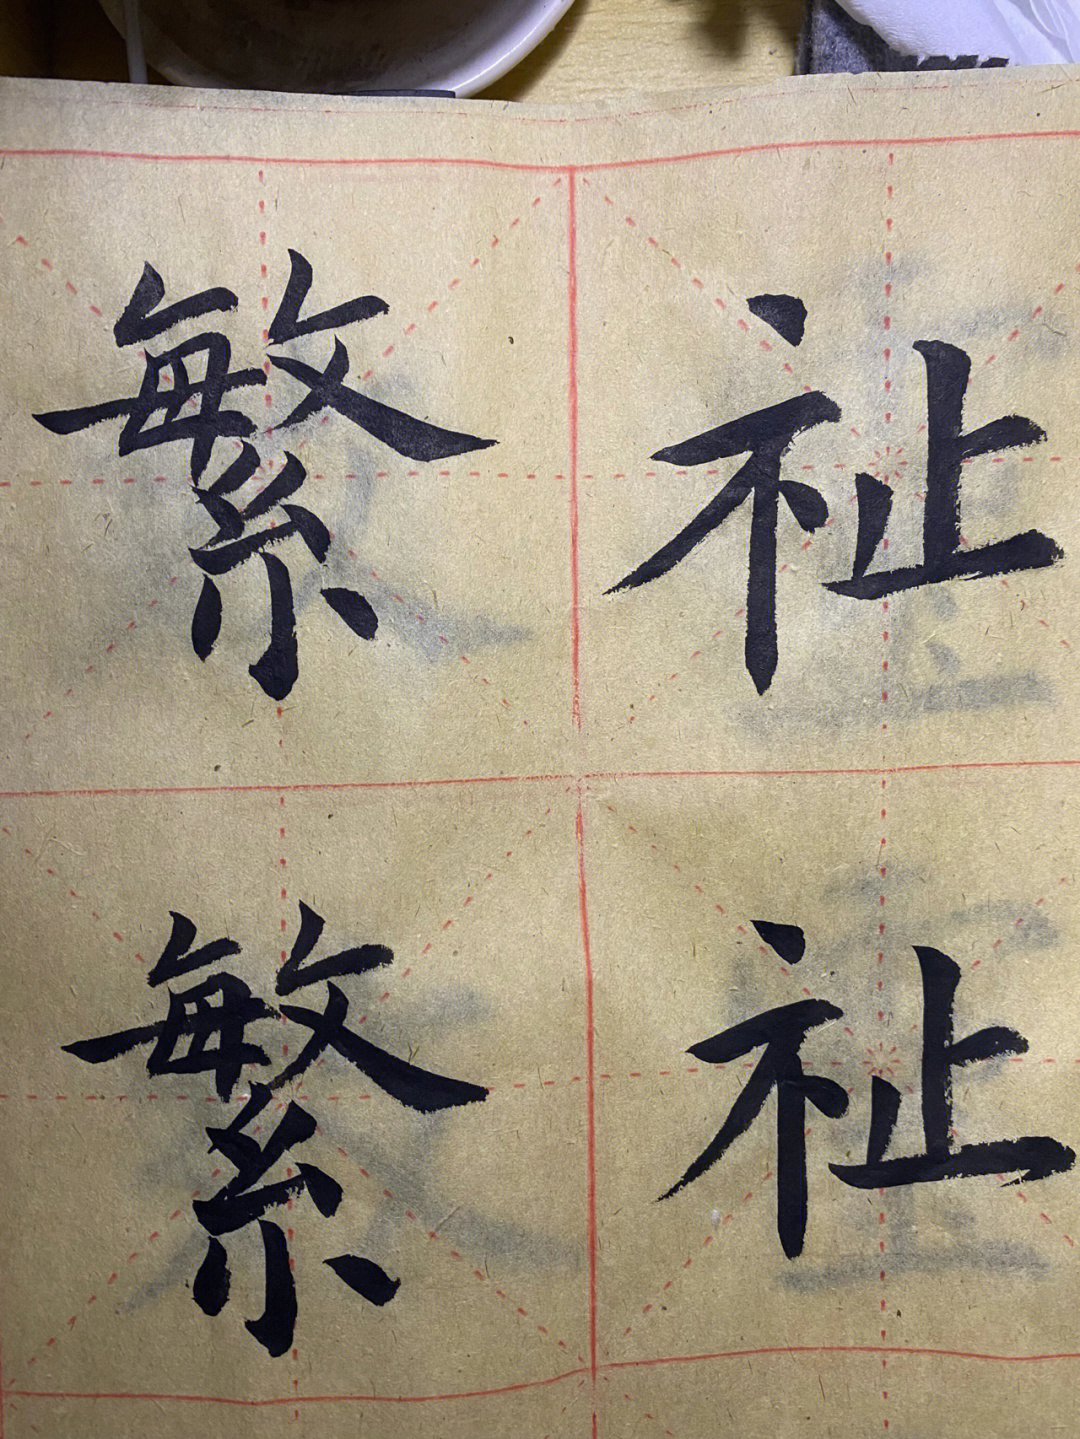 繁祉
繁祉